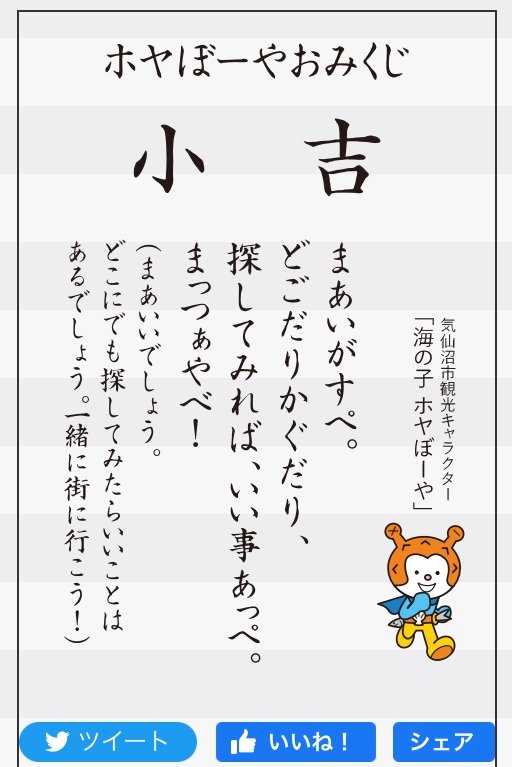 ホヤぼーやおみくじ
小 吉
気仙沼市観光キャラクター
「海の子 ホヤぼーや」
まあいがすぺ。
どごだりかぐだり、
探してみれば、いい事あっぺ。
まっつぁやべ！
（まあいいでしょう。
どこにでも探してみたらいいことは
あるでしょう。一緒に街に行こう！）
ツイート
いいね！
シェア